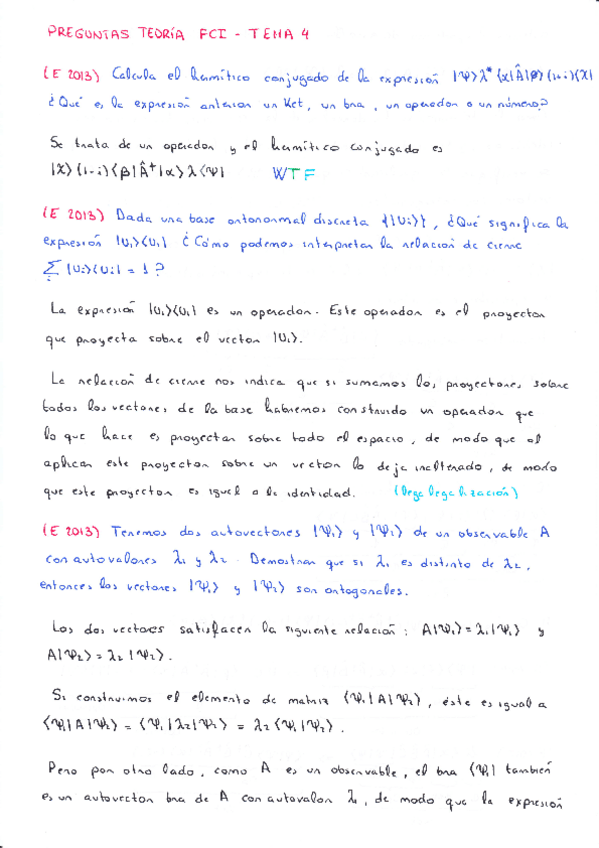 PREGUNTAS TEORÍA FCI - TEMA 4
(E 2013) Calcula el hermítico conjugado de la expresión |Ψ>λ*<α|Â|β>(1+i)<χ|
¿Qué es la expresión anterior un Ket, un bra, un operador o un número?
Se trata de un operador y el hermítico conjugado es
|χ>(1-i)<β|Â†|α>λ<Ψ| WTF
(E 2013) Dada una base ortonormal discreta {|Ui>}, ¿Qué significa la
expresión |U₁><U₁| ¿Cómo podemos interpretar la relación de cierre
∑i |Ui><Ui| = 1?
La expresión |U₁><U₁| es un operador. Este operador es el proyector
que proyecta sobre el vector |U₁>.
La relación de cierre nos indica que si sumamos los proyectores sobre
todos los vectores de la base habremos construido un operador que
lo que hace es proyectar sobre todo el espacio, de modo que al
aplicar este proyector sobre un vector lo deja inalterado, de modo
que este proyector es igual a la identidad. (legalegalización)
(E 2013) Tenemos dos autovectores |Ψ₁> y |Ψ₂> de un observable A
con autovalores λ₁ y λ₂. Demostrar que si λ₁ es distinto de λ₂,
entonces los vectores |Ψ₁> y |Ψ₂> son ortogonales.
Los dos vectores satisfacen la siguiente relación: A|Ψ₁> = λ₁|Ψ₁> y
A|Ψ₂> = λ₂|Ψ₂>.
Si construimos el elemento de matriz <Ψ₁|A|Ψ₂>, éste es igual a
<Ψ₁|A|Ψ₂> = <Ψ₁|λ₂|Ψ₂> = λ₂<Ψ₁|Ψ₂>.
Pero por otro lado, como A es un observable, el bra <Ψ₁| también
es un autovector bra de A con autovalor λ₁, de modo que la expresión